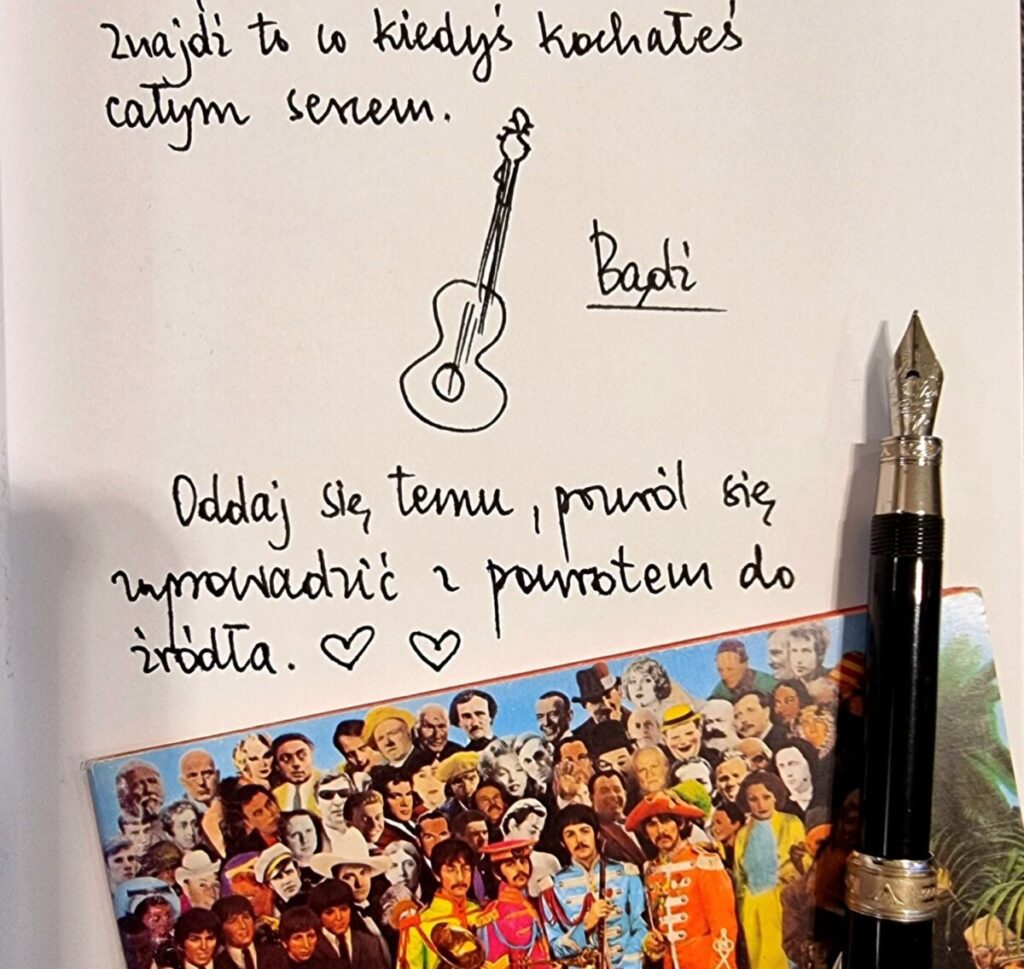 znajdź to co kiedyś kochałeś
całym sercem.
Bądź
Oddaj się temu, pozwól się
wyprowadzić z powrotem do
źródła. ♡ ♡